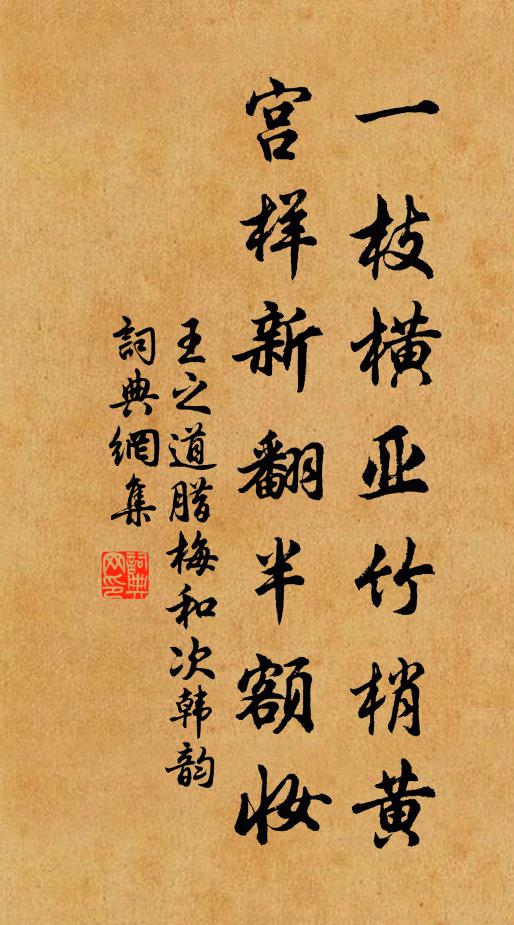 一枝横亚竹梢黄
宫样新翻半额妆
王之道腊梅和次韩韵
詞典網集
詞典网印